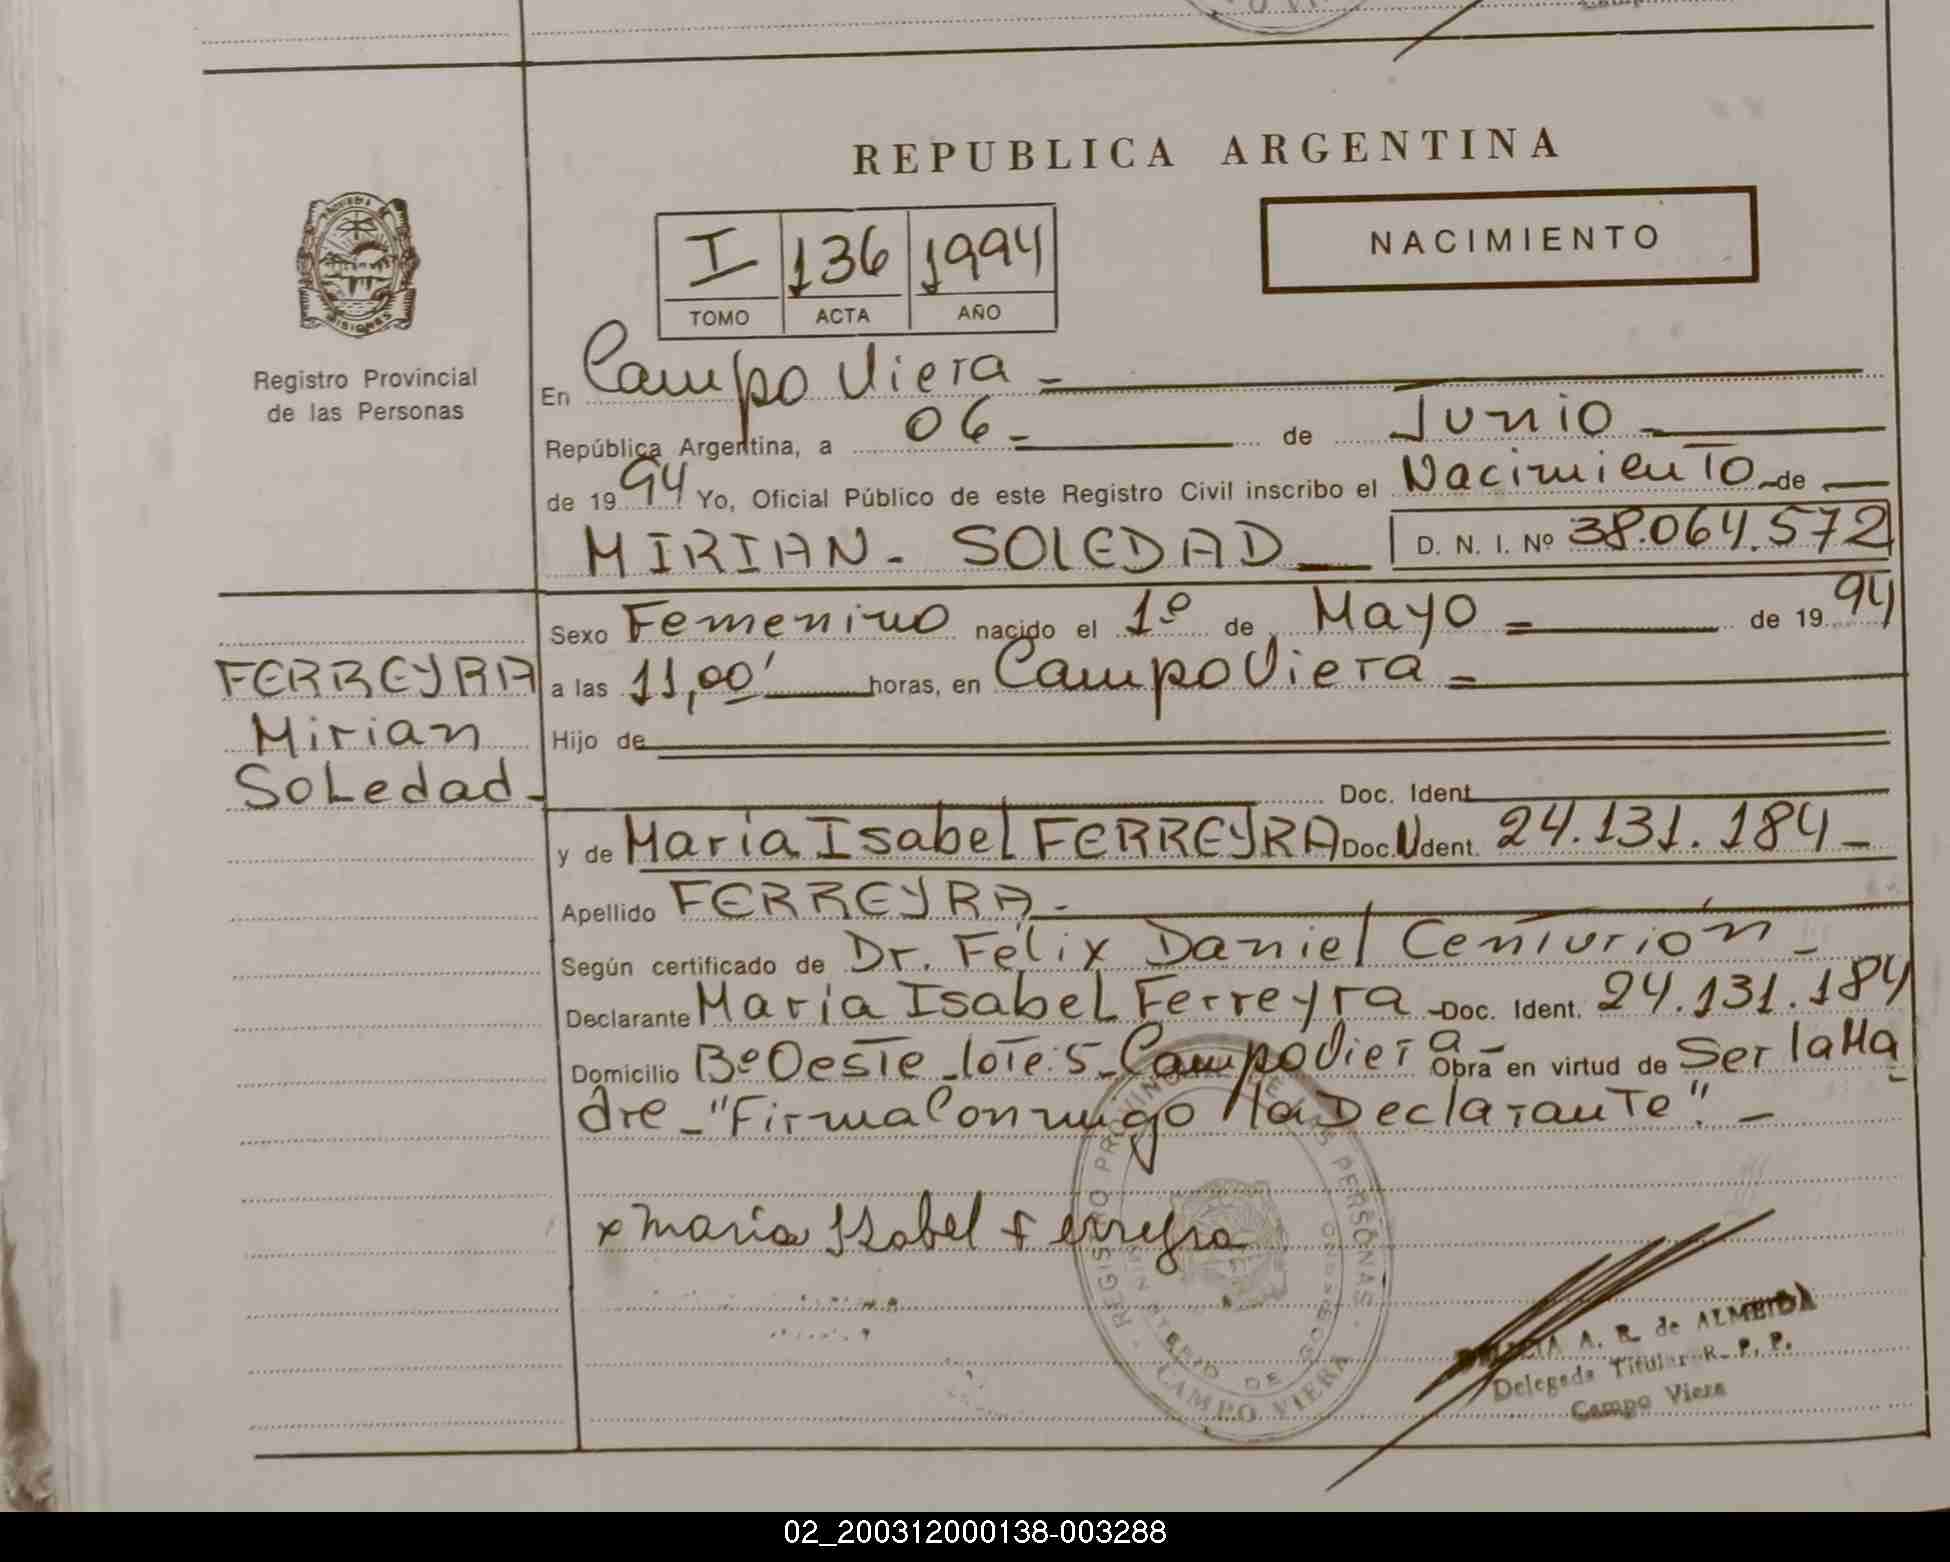 REPUBLICA ARGENTINA
NACIMIENTO
I 136 1994
TOMO ACTA AÑO
PROVINCIA DE
MISIONES
Registro Provincial
de las Personas
En Campo Viera
República Argentina, a 06 de Junio
de 1994 Yo, Oficial Público de este Registro Civil inscribo el Nacimiento de
MIRIAN - SOLEDAD D. N. I. Nº 38.064.572
Sexo Femenino nacido el 1º de Mayo de 1994
FERREYRA
Mirian
Soledad
a las 11,00' horas, en Campo Viera
Hijo de
Doc. Ident.
y de María Isabel FERREYRA Doc. Ident. 24.131.184
Apellido FERREYRA
Según certificado de Dr. Félix Daniel Centurión
Declarante María Isabel Ferreyra Doc. Ident. 24.131.184
Domicilio Bº Oeste - lote: 5 - Campo Viera - Obra en virtud de Ser la Ma
dre - "Firma Conmigo la Declarante". -
x Maria Isabel Ferreyra
REGISTRO PROVINCIAL DE LAS PERSONAS
MINISTERIO DE GOBIERNO
CAMPO VIERA
A. R. de ALMEIDA
Delegada Titular R. P. P.
Campo Viera
02_200312000138-003288